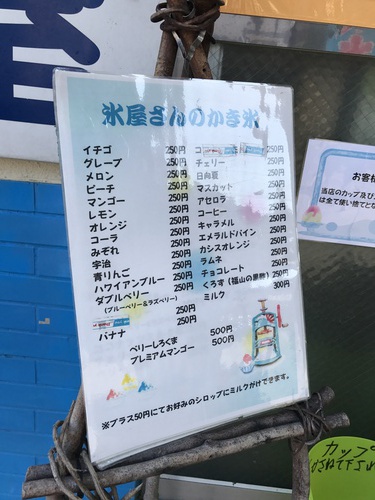 氷屋さんのかき氷
イチゴ 250円
グレープ 250円
メロン 250円
ピーチ 250円
マンゴー 250円
レモン 250円
オレンジ 250円
コーラ 250円
みぞれ 250円
宇治 250円
青りんご 250円
ハワイアンブルー 250円
ダブルベリー 250円
(ブルーベリー&ラズベリー)
250円
バナナ 250円
コ 250円
チェリー 250円
日向夏 250円
マスカット 250円
アセロラ 250円
コーヒー 250円
キャラメル 250円
エメラルドパイン 250円
カシスオレンジ 250円
ラムネ 250円
チョコレート 250円
くろず(福山の黒酢) 250円
ミルク 300円
ベリーしろくま 500円
プレミアムマンゴー 500円
※プラス50円にてお好みのシロップにミルクがけできます。
お客様
当店のカップ及び
は全て使い捨てと
カップ